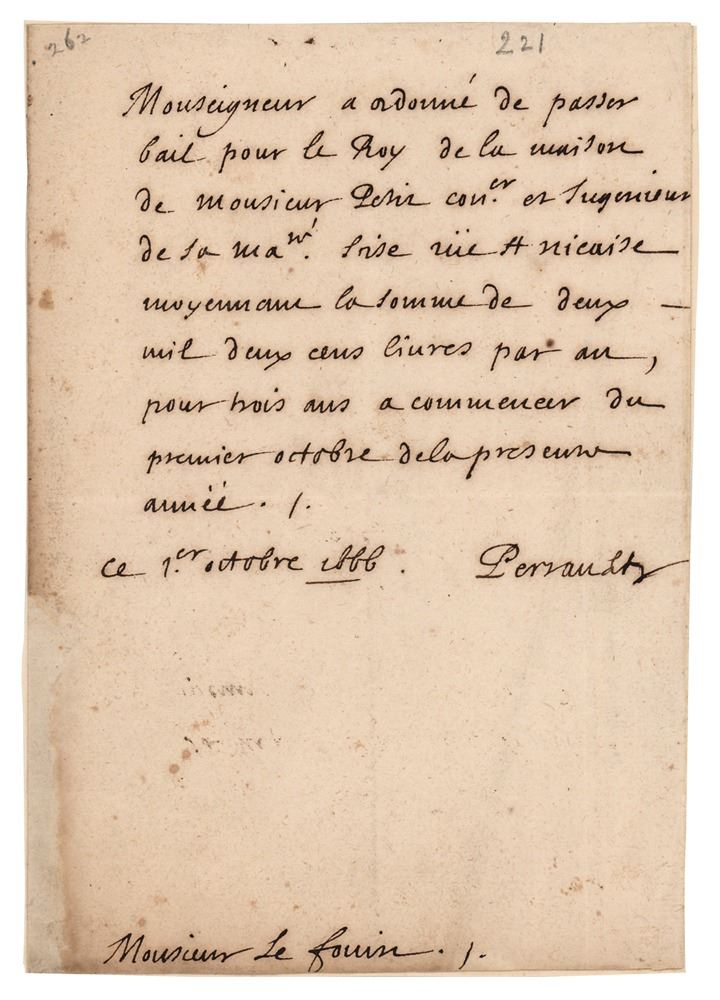 262
221
Monseigneur a ordonné de passer
bail pour le Roy de la maison
de monsieur Petit con.er et Ingenieur
de sa ma.té size rüe St nicaise
moyennant la somme de deux —
mil deux cens liures par an,
pour trois ans a commencer du
premier octobre de la presente
année . /.
ce 1.er octobre 1666 . Perrault
Monsieur Le fouin . /.